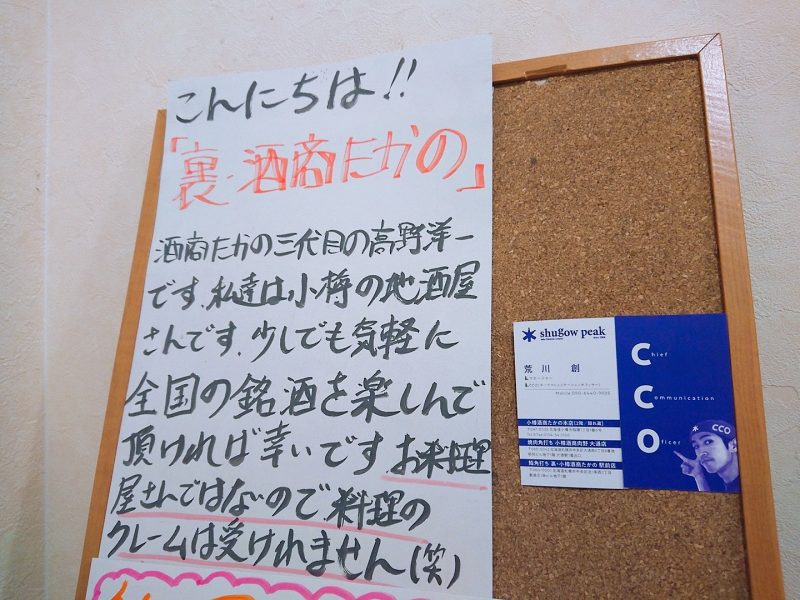 こんにちは!!
「裏・酒商たかの」
酒商たかの三代目の高野洋一
です.私達は小樽の地酒屋
さんです.少しでも気軽に
全国の銘酒を楽しんで
頂ければ幸いです お料理
屋さんではないので、料理の
クレームは受けれません(笑)
shugow peak
荒川 創
Chief
Communication
Officer
CCO
小樽酒商たかの本店(2階/隠れ蔵)
焼肉角打ち 小樽酒商肉野 大通店
鮨角打ち 裏・小樽酒商たかの 駅前店